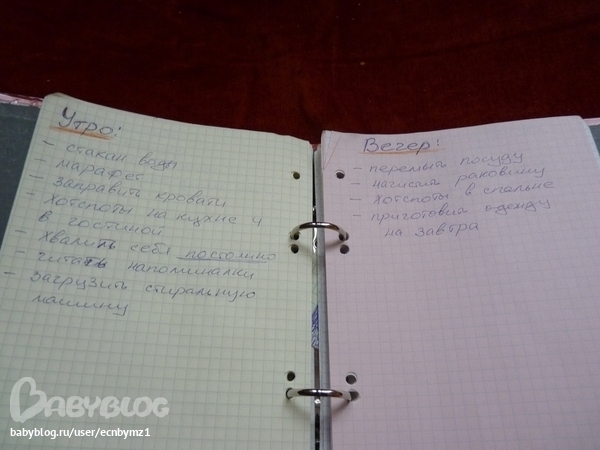 Утро:
- стакан воды
- марафет
- заправить кровати
- Хотспоты на кухне и
в гостиной
- Хвалить себя постоянно
- читать напоминалки
- Загрузить стиральную
машину
Вечер:
- перемыть посуду
- начистить раковину
- Хотспоты в спальне
- приготовить одежду
на завтра
BABYBLOG
babyblog.ru/user/ecnbymz1